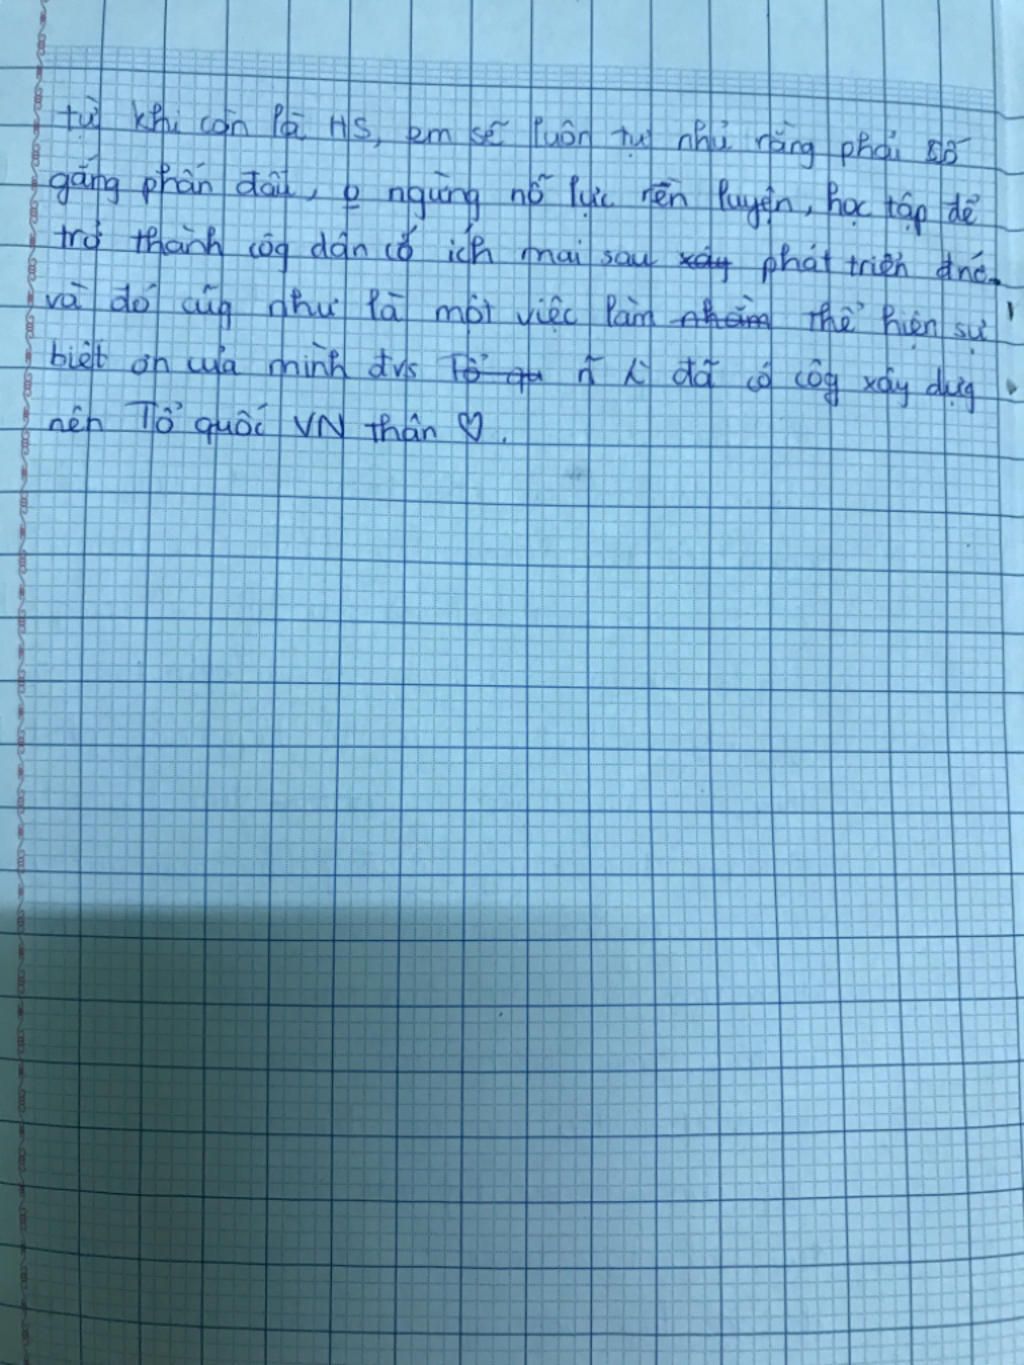 từ khi còn là HS, em sẽ luôn tự nhủ rằng phải cố
gắng phấn đấu, o ngừng nỗ lực rèn luyện, học tập để
trở thành côg dân có ích mai sau xây phát triển đnc
và đó cũg như là một việc làm nhằm thể hiện sự
biết ơn của mình đvs Tổ qu ñ k đã có côg xây dựg
nên Tổ quốc VN thân ♡.